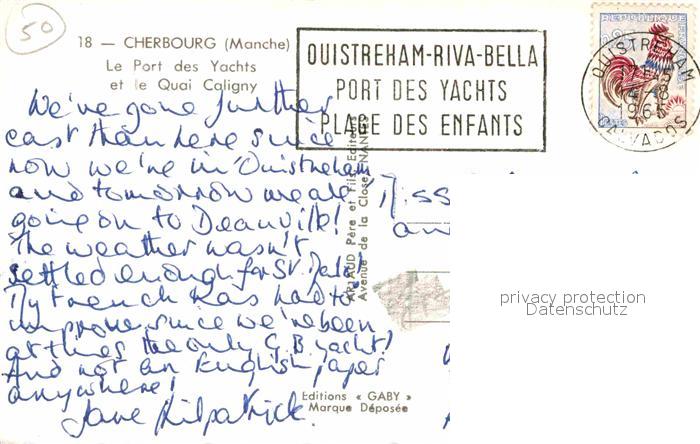 50
18 — CHERBOURG (Manche)
Le Port des Yachts
et le Quai Caligny
OUISTREHAM-RIVA-BELLA
PORT DES YACHTS
PLAGE DES ENFANTS
OUISTREHAM
CALVADOS
We've gone further
east than here since
now we're in Ouistreham
and tomorrow we are
going on to Deauville!
The weather wasn't
settled enough for St. Malo!
My French has had to
improve since we've been
at times the only G.B. yacht!
And not an English paper
anywhere!
Jane Kilpatrick.
ARTAUD Père et Fils Editeurs
Avenue de la Close NANTES
Editions « GABY »
Marque Déposée
privacy protection
Datenschutz